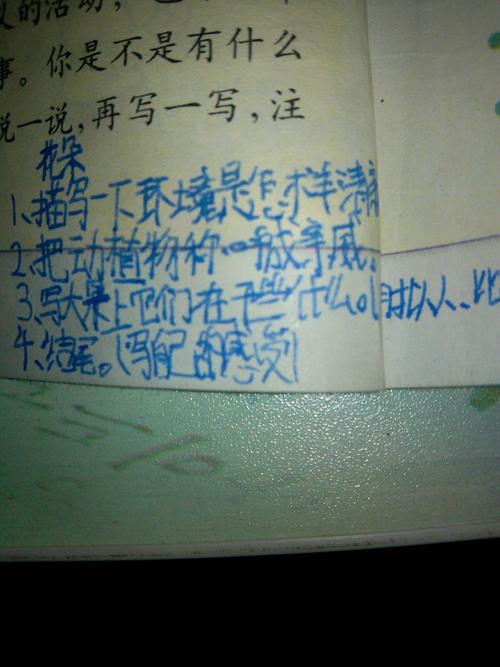 的活动，
事。你是不是有什么
说一说，再写一写，注
花朵
1、描写一下环境是怎样清
2、把动植物称 成亲戚。
3、写大 上它们在干些什么。
4、结尾。（写自己的感受）